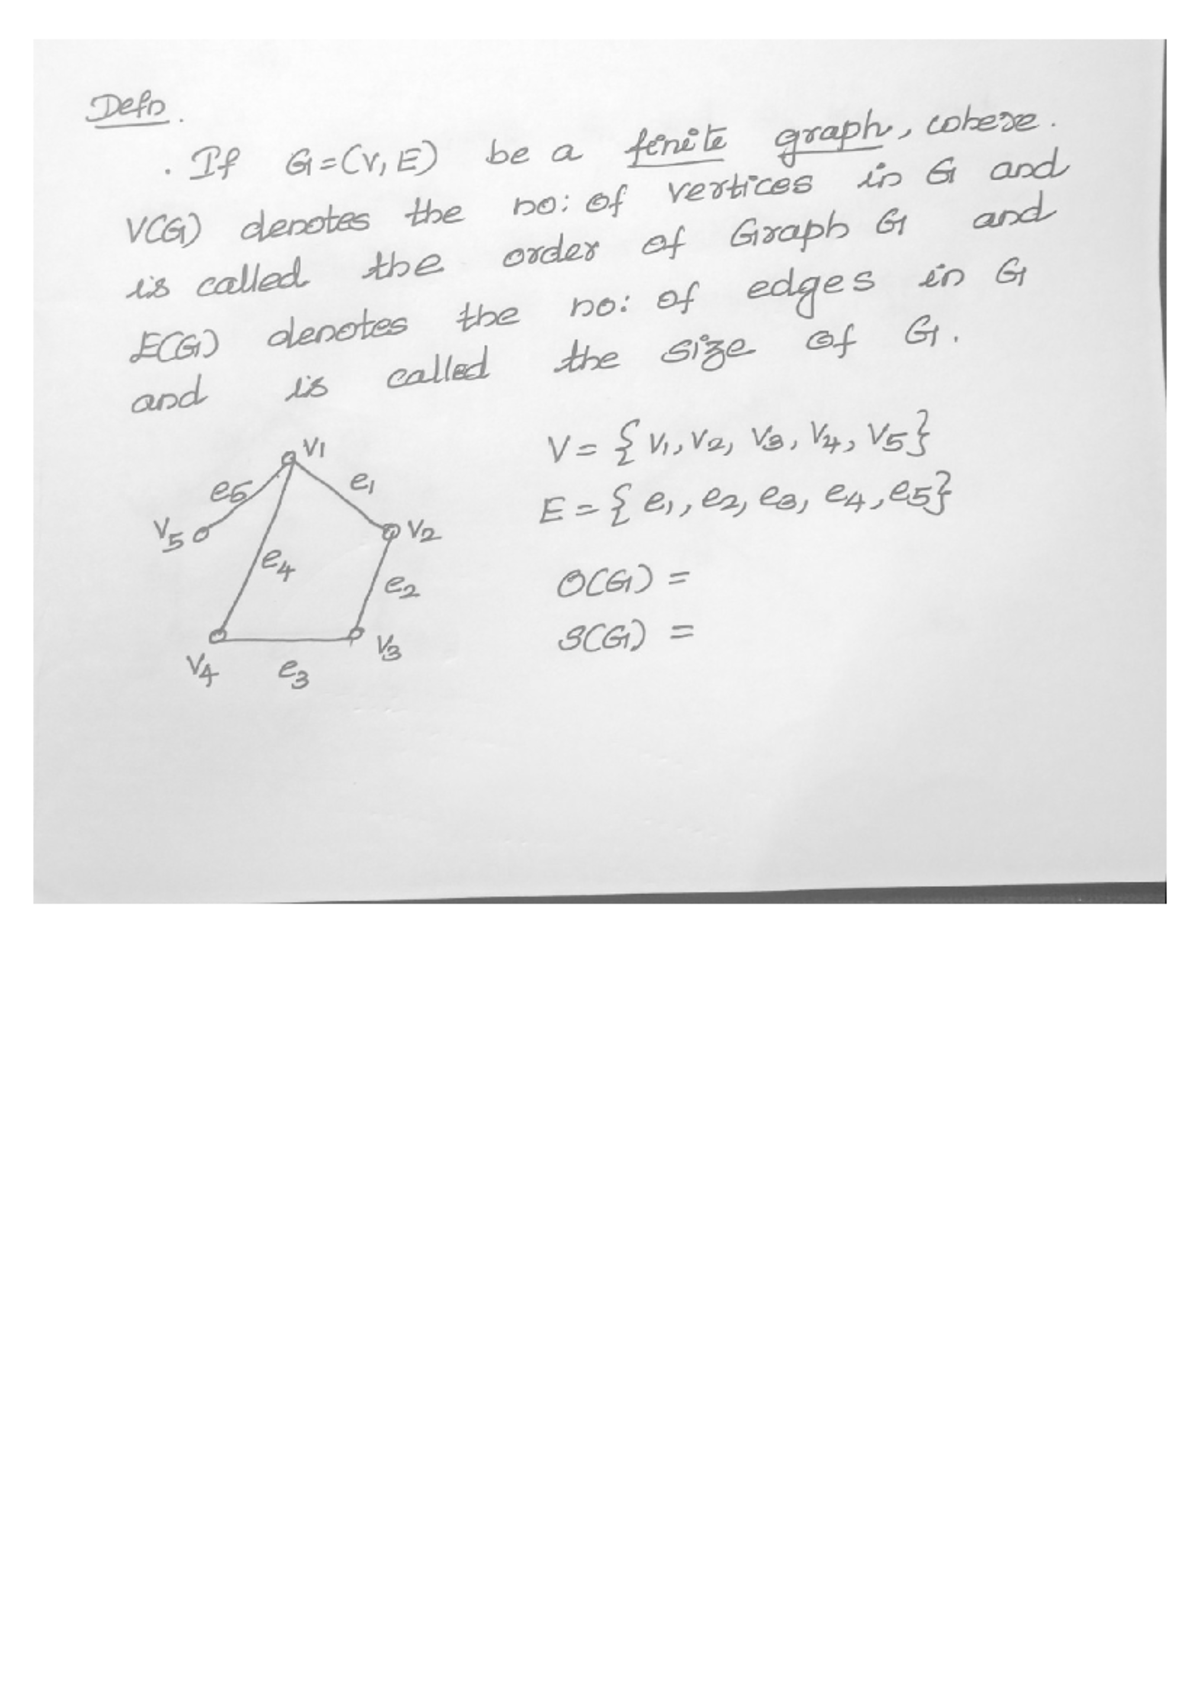 Defn.
. If G=(V, E) be a finite graph, where.
V(G) denotes the no: of vertices in G and
is called the order of Graph G and
E(G) denotes the no: of edges in G
and is called the size of G.
V = { v1, v2, v3, v4, v5}
E = { e1, e2, e3, e4, e5}
O(G) =
S(G) =
v1
e5
e1
v5
v2
e4
e2
v4
v3
e3